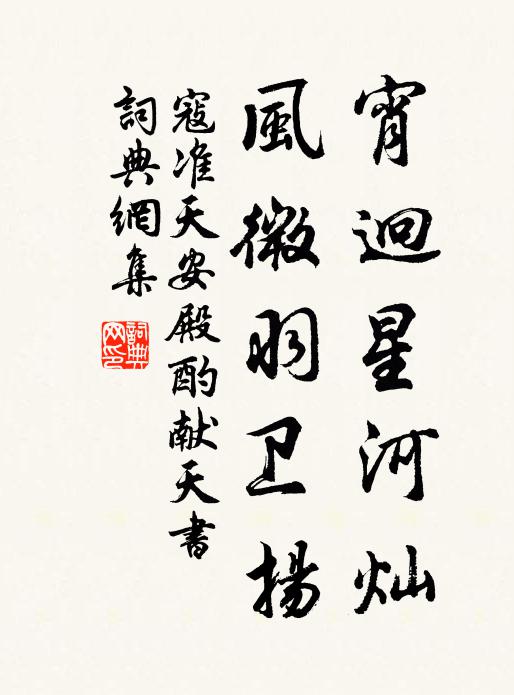 宵迥星河灿
風微羽卫揚
寇准天安殿酌献天書
詞典網集
詞典網印